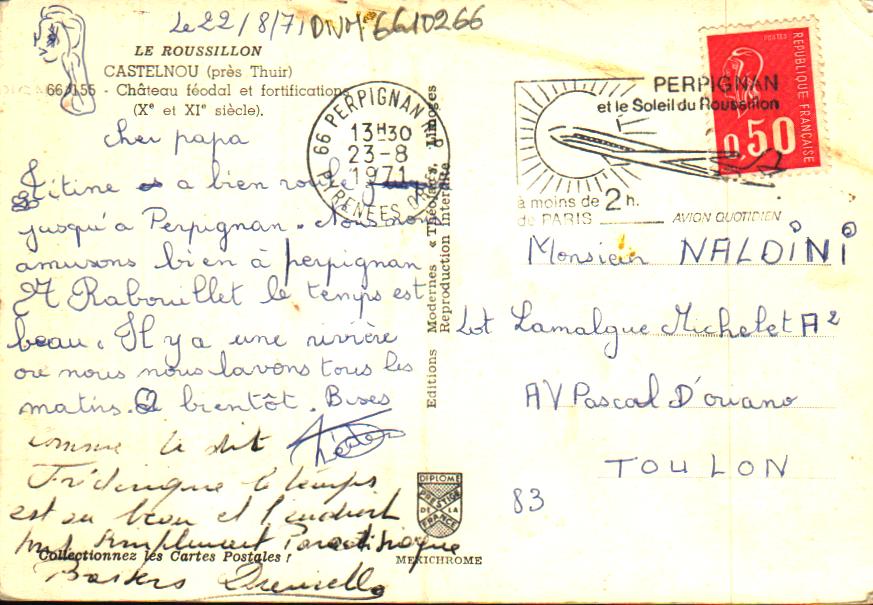 Le 22/8/71 DNM 6610266
LE ROUSSILLON
CASTELNOU (près Thuir)
66/155 - Château féodal et fortifications
(Xe et XIe siècle).
cher papa
Titine a bien roulé
jusqu'à Perpignan. Nous nous
amusons bien à perpignan
A Rabouillet le temps est
beau. Il y a une rivière
ou nous nous lavons tous les
matins. A bientôt. Bises
comme le dit
Frédérique le temps
est au beau et l'endroit
tout simplement Paradisiaque
Baisers
Collectionnez les Cartes Postales !
Editions Modernes « Théojac », Limoges
Reproduction interdite
DIPLOME
PRESTIGE
DE LA
FRANCE
MEXICHROME
66 PERPIGNAN
13H30
23-8
1971
PYRENEES OR.
PERPIGNAN
et le Soleil du Roussillon
à moins de 2 h.
de PARIS
AVION QUOTIDIEN
POSTES
REPUBLIQUE FRANÇAISE
0,50
Monsieur NALDINI
Lot Lamalgue Michelet A2
AV Pascal D'ouano
TOULON
83